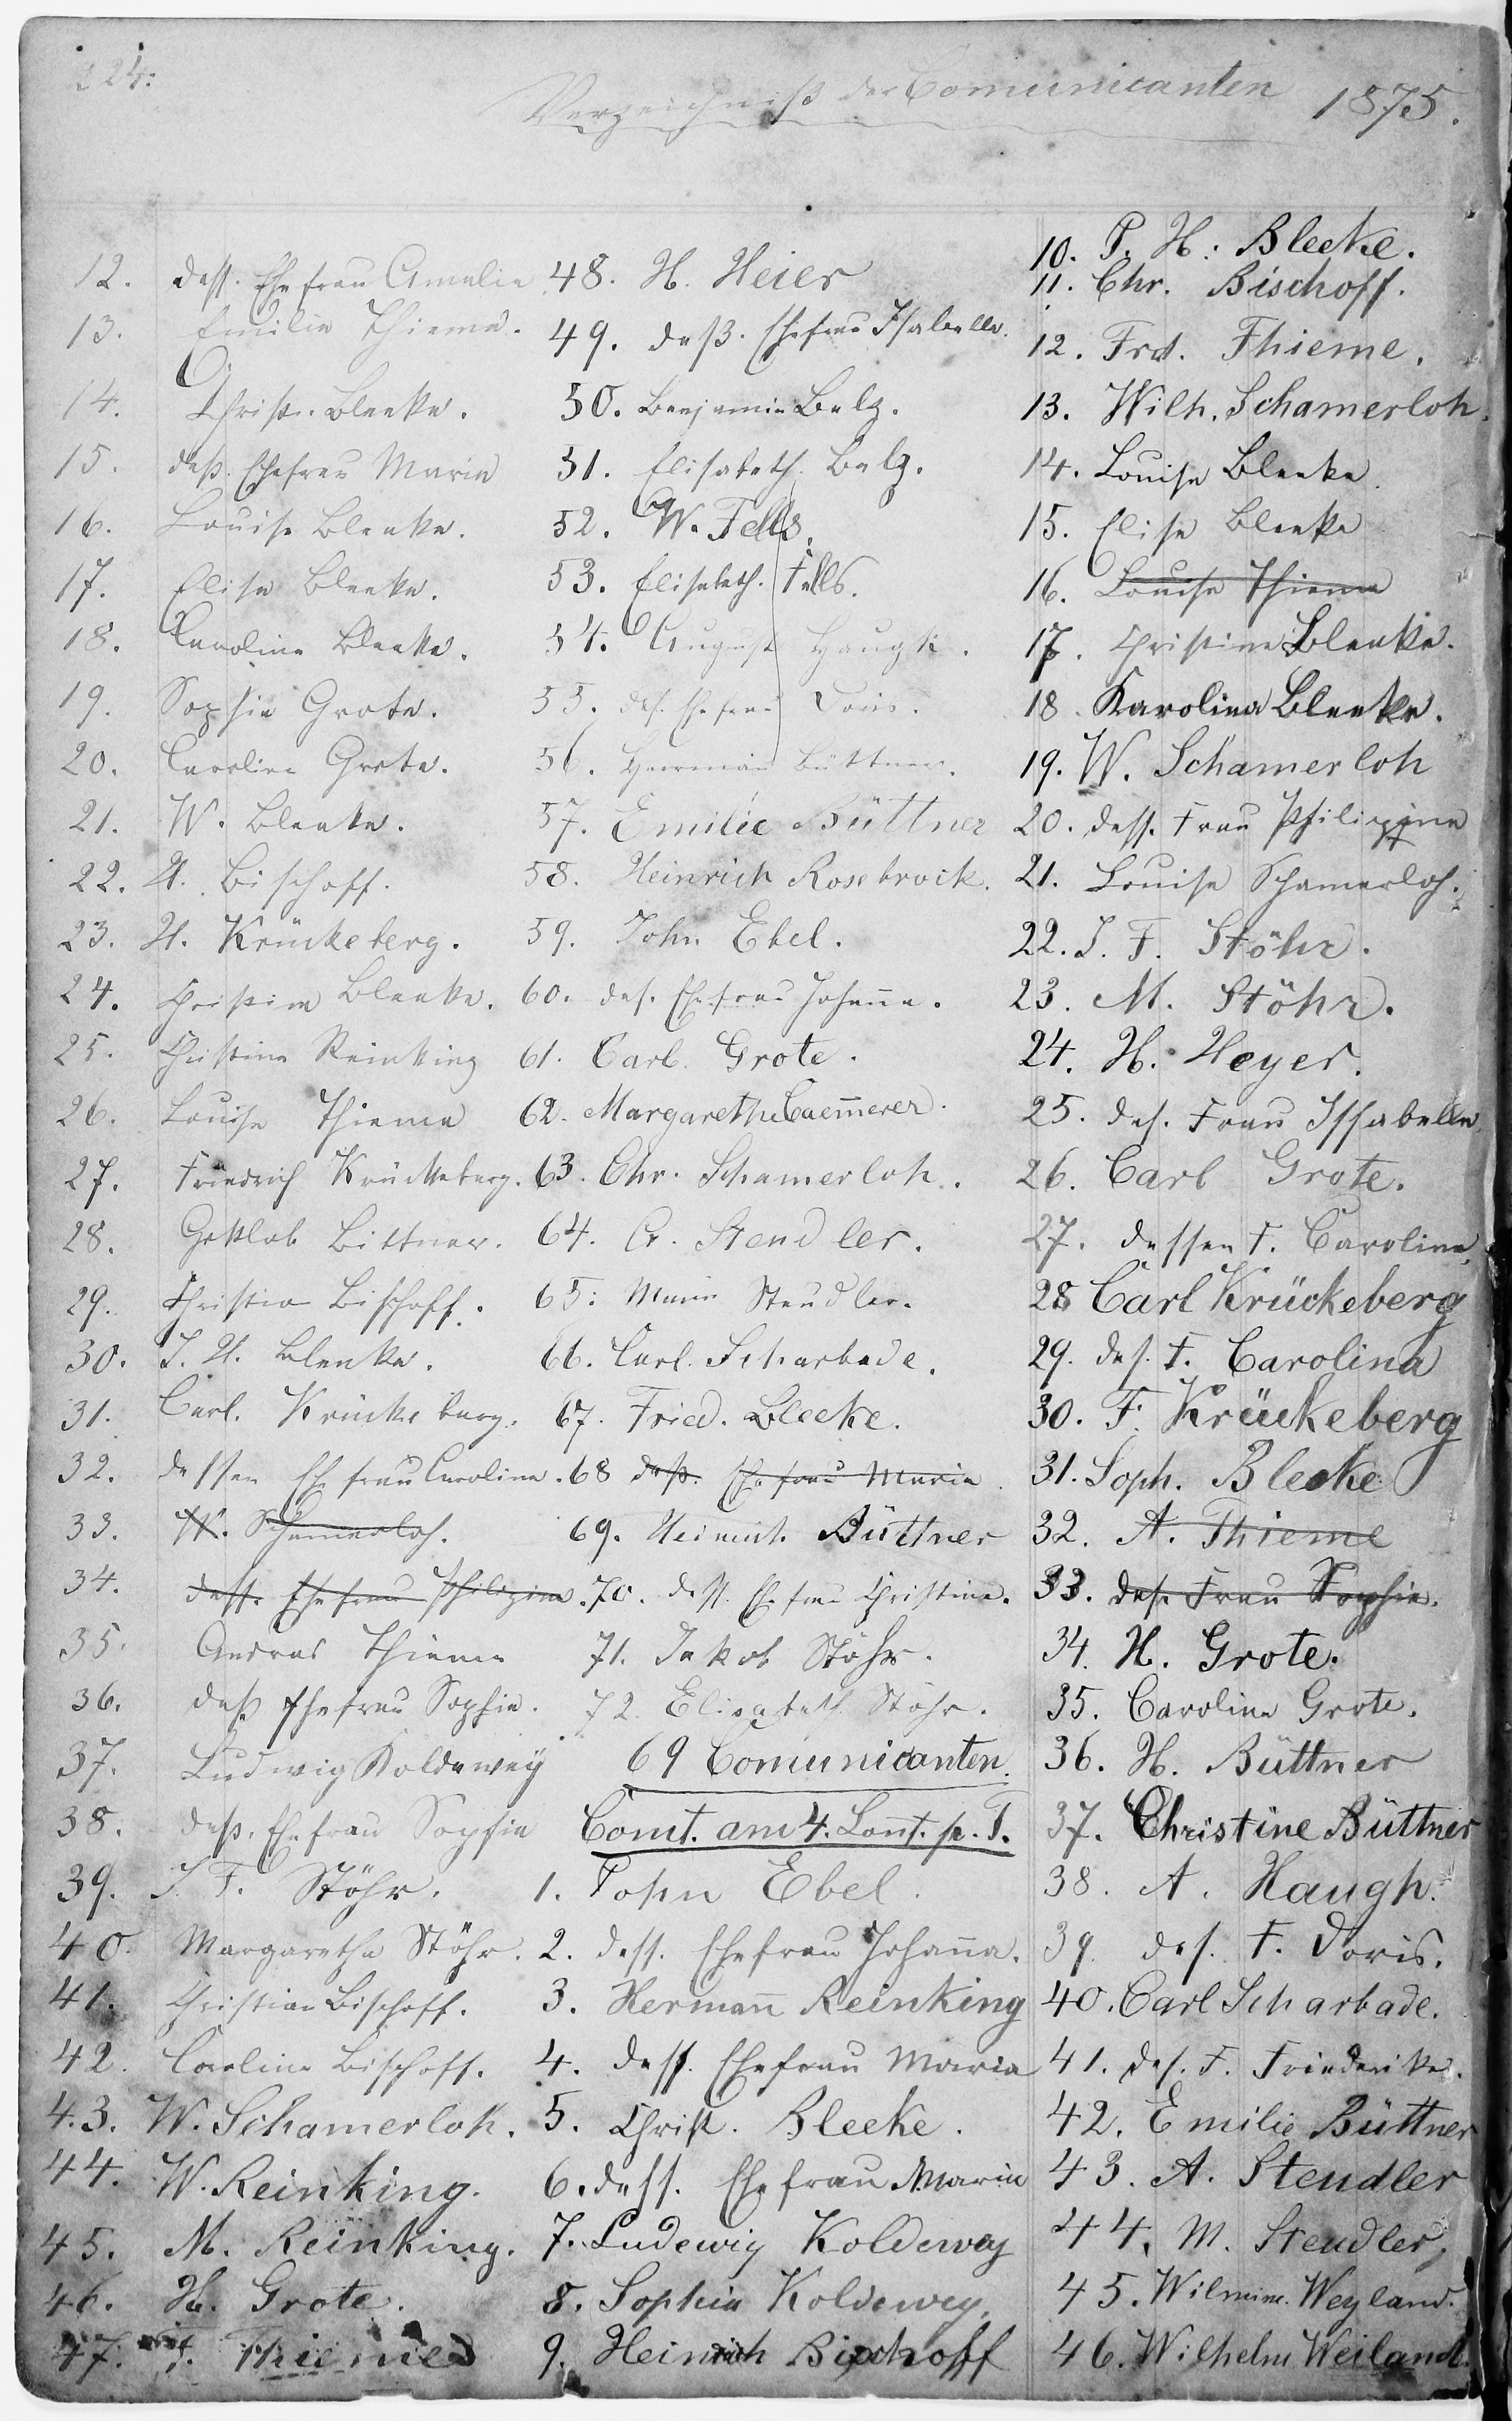 224.
Verzeichniß der Comunicanten 1875.
12. dess. Ehefrau Amalie
13. Emilie Thieme.
14. Christ. Bleeke.
15. deß. Ehefrau Maria
16. Louise Bleeke.
17. Elise Bleeke.
18. Caroline Bleeke.
19. Sophie Grote.
20. Caroline Grote.
21. W. Bleeke.
22. H. Bischoff.
23. H. Krückeberg.
24. Christine Bleeke.
25. Christine Reinking
26. Louise Thieme
27. Friedrich Krückeberg.
28. Gottlob Bittner.
29. Christian Bischoff.
30. J. H. Bleeke.
31. Carl. Krückeberg.
32. dessen Ehefrau Caroline.
33. W. Schamerloh.
34. dess. Ehefrau Philipine.
35. Andreas Thieme
36. deß Ehefrau Sophie.
37. Ludwig Koldewey
38. deß. Ehefrau Sophie
39. J. F. Stöhr.
40. Margaretha Stöhr.
41. Christian Bischoff.
42. Caroline Bischoff.
43. W. Schamerloh.
44. W. Reinking.
45. M. Reinking.
46. H. Grote.
47. F. Thieme
48. H. Heier
49. deß. Ehefrau Isabelle.
50. Benjamin Belz.
51. Elisabeth Belz.
52. W. Fells.
53. Elisabeth. Fells.
54. August Haugk.
55. des. Ehefrau Doris.
56. Herrman Büttner.
57. Emilie Büttner
58. Heinrich Rosebrock.
59. John Ebel.
60. des. Ehefrau Johanna.
61. Carl. Grote.
62. Margarethe Caem̄erer.
63. Chr. Schamerloh.
64. A. Stendler.
65. Marie Steudler.
66. Carl. Scharbade.
67. Fried. Bleeke.
68 deß. Ehefrau Maria.
69. Heinrich. Büttner
70. dess. Ehefrau Christine.
71. Jakob Stöhr.
72. Elisabeth Stöhr.
69 Comunicanten.
Comt. am 4. Sonnt. p. T.
1. John Ebel.
2. dess. Ehefrau Johan̄a.
3. Herman̄ Reinking
4. dess. Ehefrau Maria
5. Christ. Bleeke.
6. dess. Ehefrau Maria
7. Ludewig Koldewey
8. Sophia Koldewey.
9. Heinrich Bischoff
10. P. H. Bleeke.
11. Chr. Bischoff.
12. Frd. Thieme.
13. Wilh. Schamerloh.
14. Louise Bleeke.
15. Elise Bleeke
16. Louise Thieme
17. Christine Bleeke.
18. Karolina Bleeke.
19. W. Schamerloh
20. dess. Frau Philippine
21. Louise Schamerloh.
22. J. F. Stöhr.
23. M. Stöhr.
24. H. Heyer.
25. des. Frau Issabelle.
26. Carl Grote.
27. dessen F. Caroline.
28 Carl Krückeberg
29. des. F. Carolina
30. F. Krückeberg
31. Soph. Bleeke
32. A. Thieme
33. des. Frau Sophie.
34. H. Grote.
35. Caroline Grote.
36. H. Büttner
37. Christine Büttner
38. A. Haugh.
39. des. F. Doris.
40. Carl Scharbade.
41. des. F. Friederike.
42. Emilie Büttner
43. A. Stendler
44. M. Steudler,
45. Wilmine. Weyland.
46. Wilhelm Weiland.